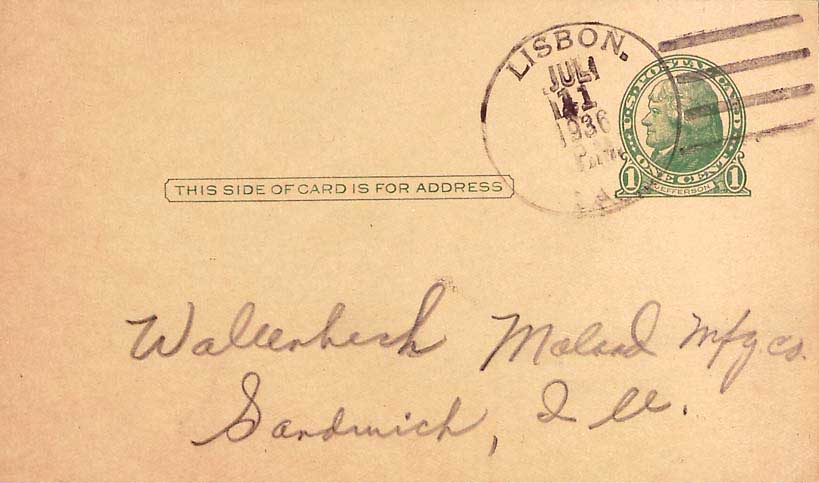 LISBON.
JUL
11
1936
U.S. POSTAL CARD
ONE CENT
1 JEFFERSON 1
THIS SIDE OF CARD IS FOR ADDRESS
Mfg co.
Sandwich, Ill.